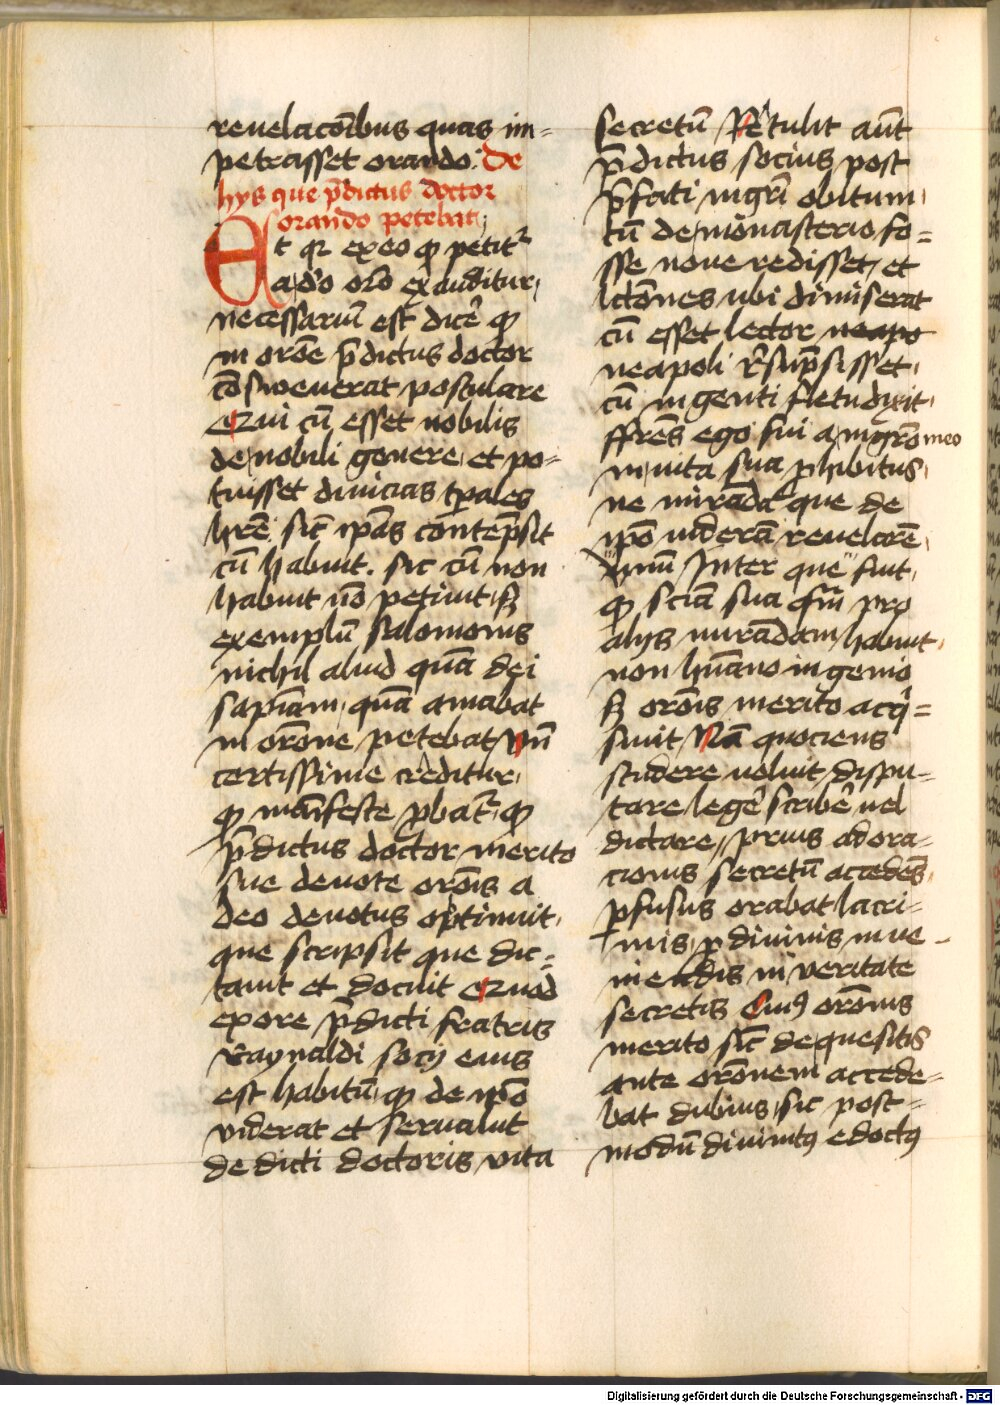 reuelaco̅ibus quas im=
petrasset orando: De
hys que p̅dictus doctor
orando petebat;
Et qr exeo qꝫ petitr
a do̅ oro̅ exauditur,
necessariu̅ est dice̅ qꝫ
in oro̅e p̅dictus doctor
co̅sweuerat postulare
Qui cu̅ esset nobilis
de nobili genere, et po=
tuisset diuicias tp̅ales
hr̅e. sic̅ ip̅as conte̅psit
cu̅ habuit. sic cu̅ non
habuit no̅ petiuit, sꝫ
exemplu̅ salomonis
nichil aliud qua̅ dei
sapia̅m, qua̅ amabat
in oro̅ne petebat Vn̅
certissime creditur,
qꝫ ma̅ifeste ꝓbatr, qꝫ
p̅dictus doctor merito
sue deuote oro̅is a
deo deuotus optinuit,
que scripsit que dic=
tauit et docuit Quod
ex ore p̅dicti fratris
raynaldi socy eius
est habitu̅, qꝫ de ip̅o
viderat et seruabit
de dicti doctoris vita
secretu̅ Retulit aut̅
p̅dictus socius post
p̅fati mgri̅ obitum,
cu̅ de monasterio fo=
sse noue redisset, et
lcto̅nes ubi dimiserat
cu̅ esset lector neapo
neapoli r̅sup̅sisset,
cu̅ ingenti fletu dixit,
ffre̅s ego fui a mgro̅ meo
in uita sua ꝓhibitus,
ne mira̅da que de
ip̅o videra̅ reuelare̅,
Vnu̅ Inter que fuit,
qꝫ scia̅ sua qm̅ pro
alys mira̅dam habuit,
non hu̅ano ingenio
sꝫ oro̅is merito acqi=
siuit Na̅ quociens
studere uoluit, dispu=
tare, lege̅ scribe̅ uel
dictare, prius ad ora=
cionis secretu̅ accede̅s,
ꝓfusus orabat lacri=
mis, ꝓ diuinis inue=
niendis in veritate
secretis Cui9 oro̅nis
merito sic̅ de quesitis
ante oro̅nem accede=
bat dubius, sic post=
modu̅ diuinit9 edoct9
Digitalisierung gefördert durch die Deutsche Forschungsgemeinschaft - DFG